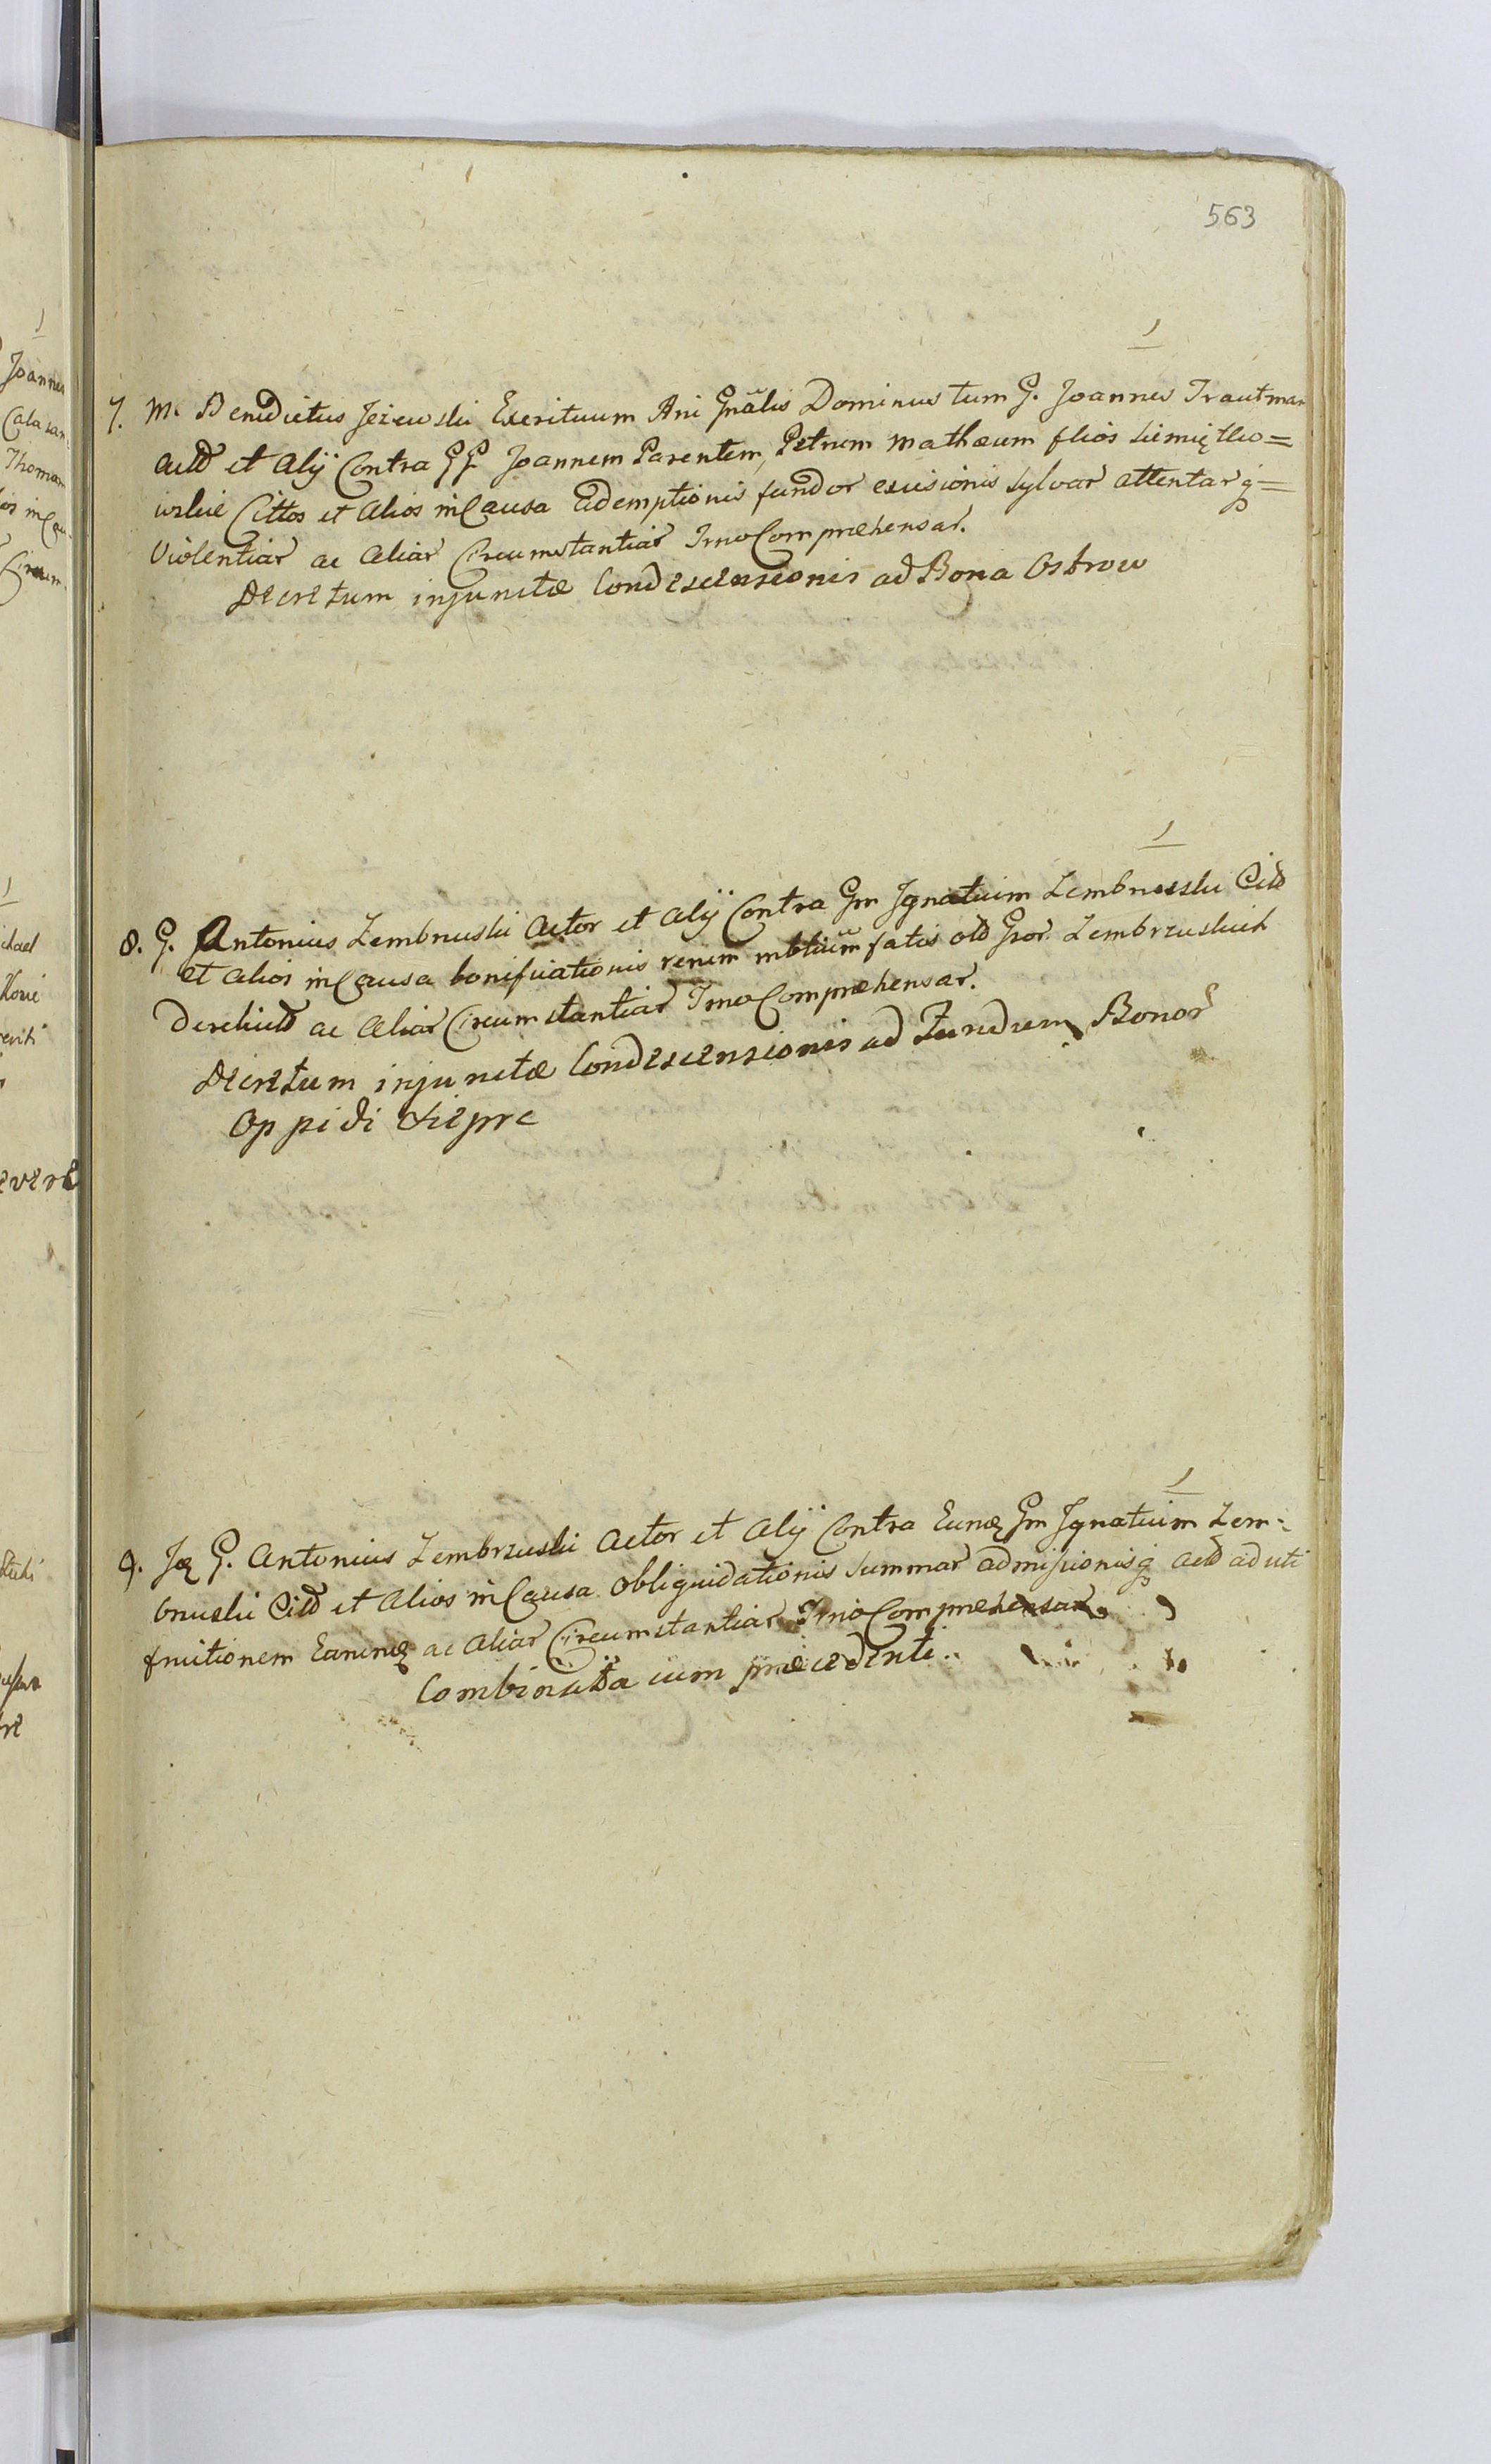 563
1
7. M. Benedictus Jeżewski Exerituum Ani Gnãlis Dominus tum G. Joannes Trautman
actõ et Alÿ Contra GG Joannem Parentem, Petrum Mathæum flios Siemiętko=
wskie Cittos et Alios in Causa Ademptionis fundor excisionis Sylvar attentarq=
Violentiar ac Aliar Circumstantiar Tmo Compræhensar.
Decretum injunctæ Condescensionis ad Bona Ostrow
1
8. G. Antonius Zembrzuski Actor et Alÿ Contra Gm Ignatium Zembrzuski Citõ
et Alios in Causa bonificationis rerum mbłium fatis olõ Gsor Zembrzuskich
Derelictõ ac Aliar Circumstantiar Tmo Compræhensar.
Decretum injunctæ Condescensionis ad Fundum Bonor
Oppidi Wieprz
1
9. Jq G. Antonius Zembrzuski Actor et Alÿ Contra Eunq Gm Ignatium Zem-
brzuski Citõ et Alios in Causa Obliquidationis Summar admissionisq actõ ad uti
fruitionem Earumq ac Aliar Circumstantiar Tmo Compræhensar
Combinata cum præcedenti